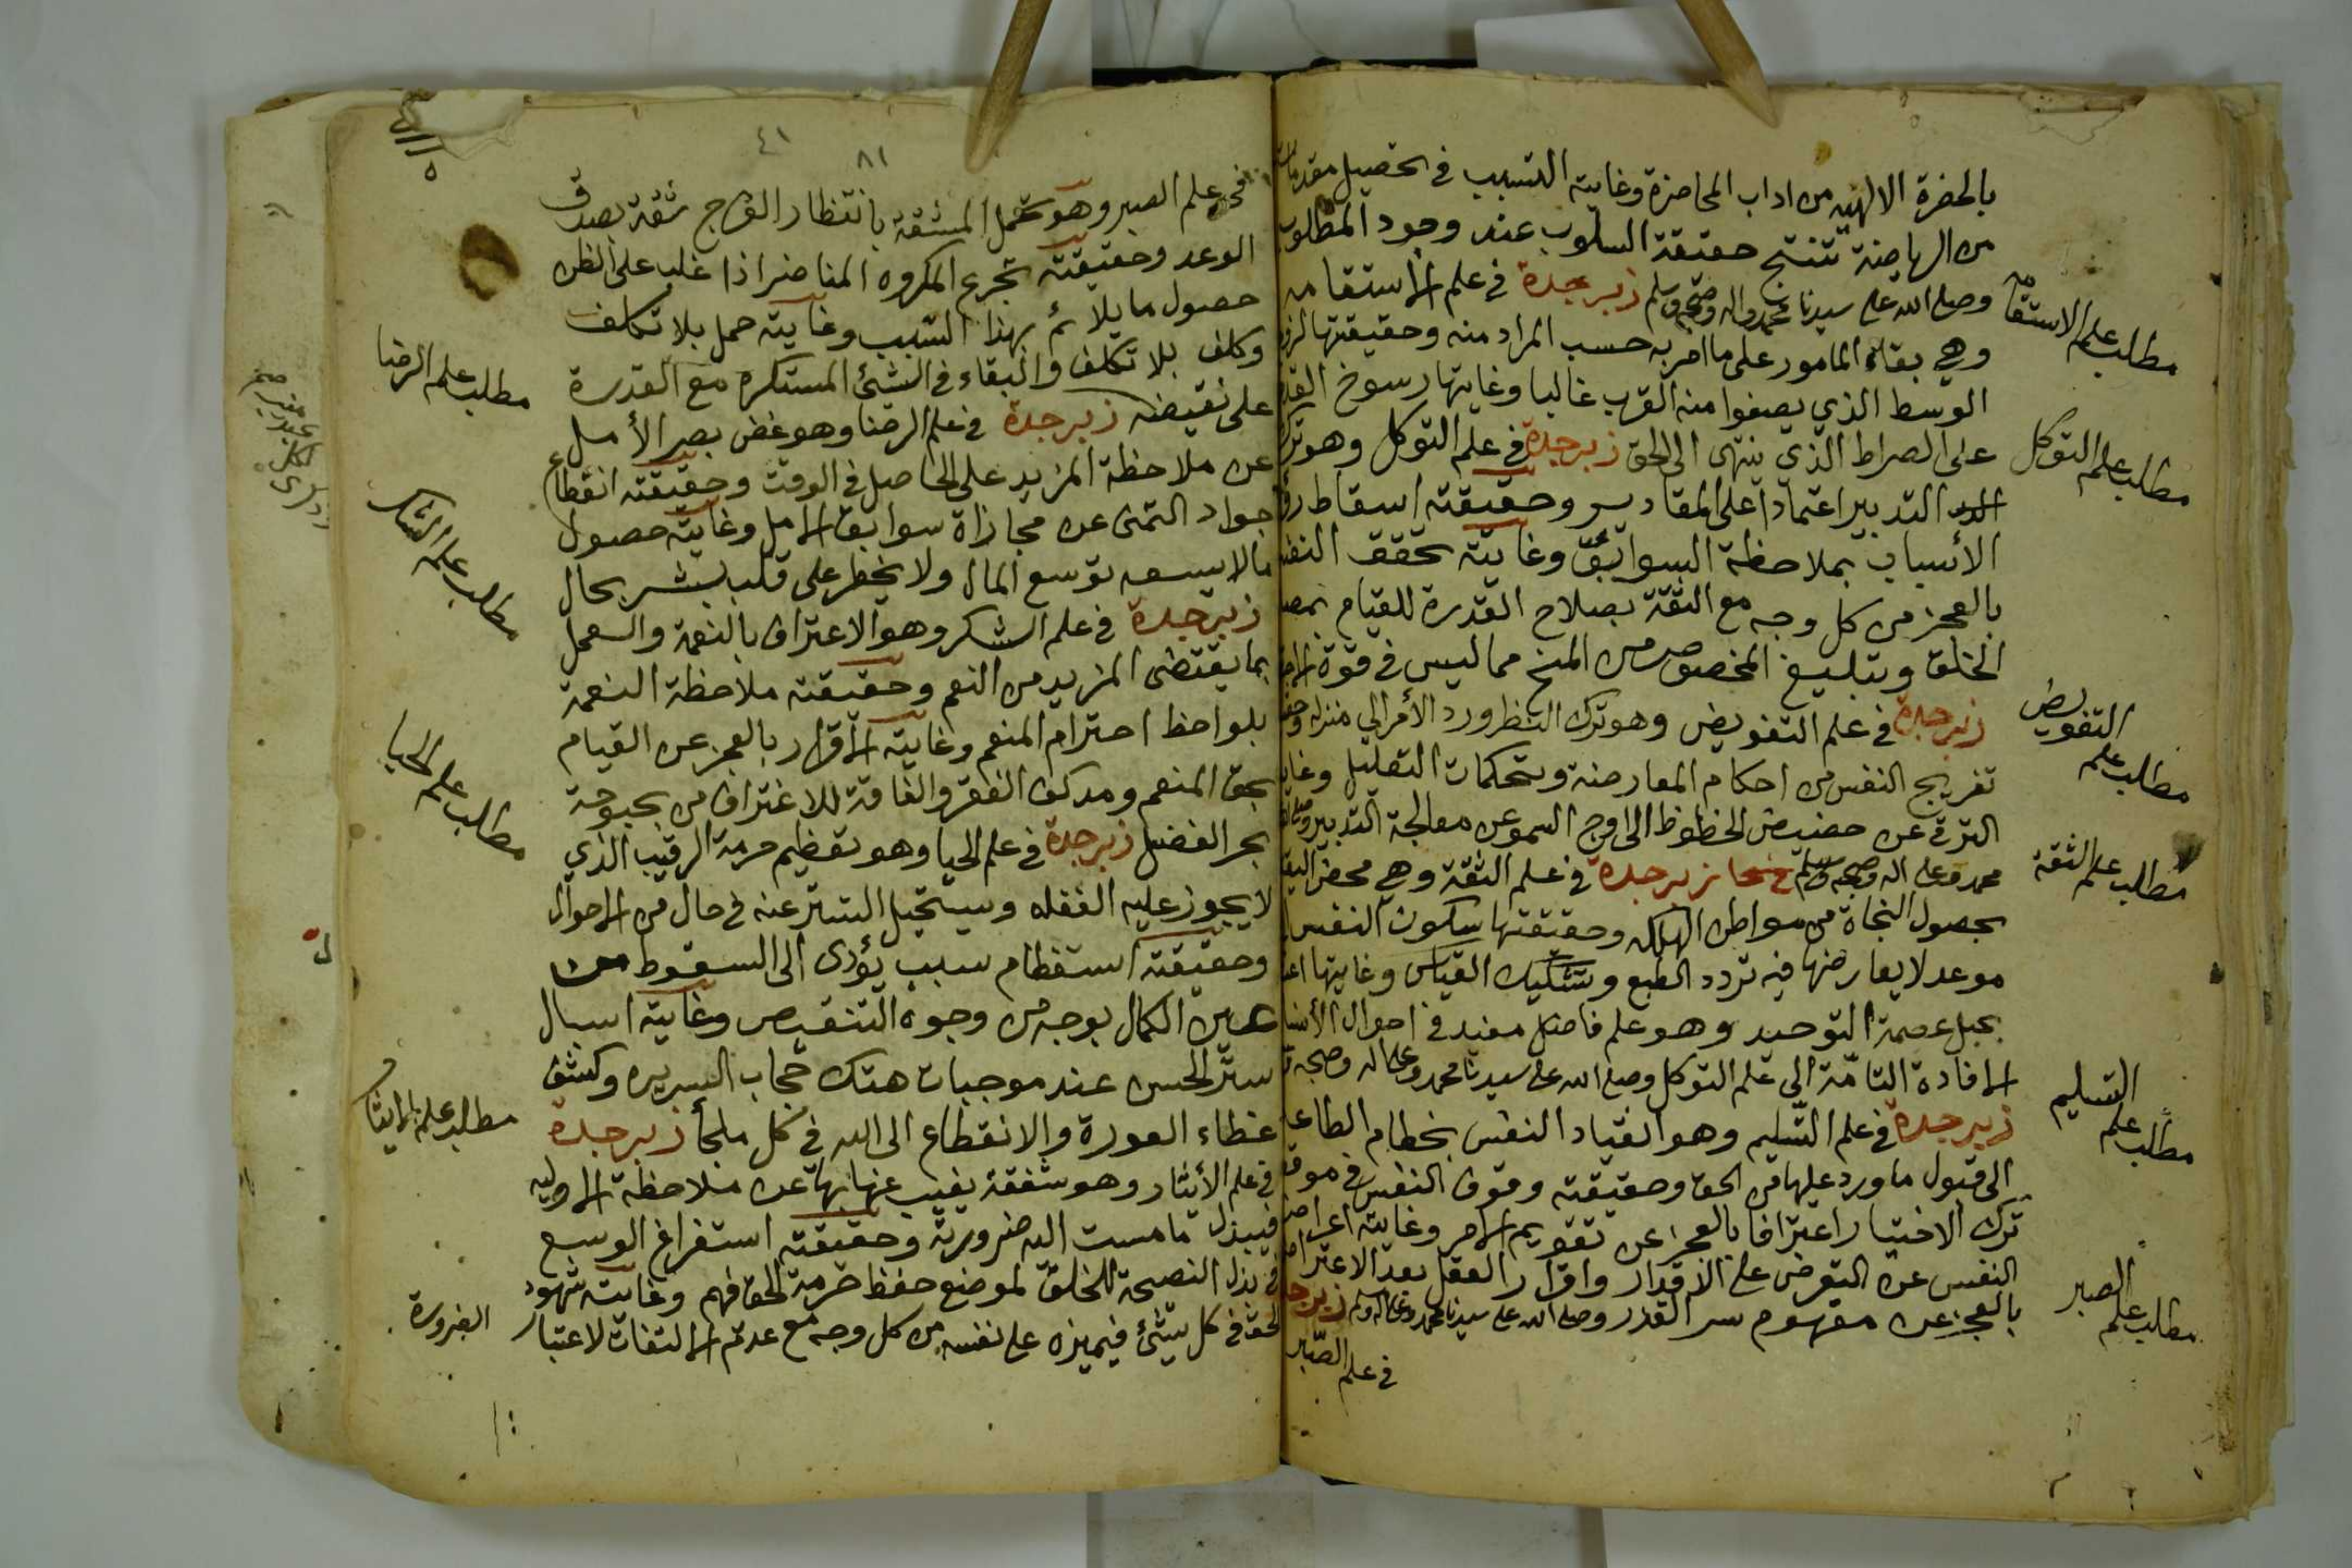 بالحضرة الالهيّه من اداب المحاضرة وغايته التسبب في تحصيل مقدمات
من الرياضة تنتج حقيقة السلوب عند وجود المطلوب
وصلى الله على سيدنا محمد واله وصحبه وسلم زبرجدة في علم الاستقامه
وهي بقاء المامور على ما امر به حسب المراد منه وحقيقتها لزوم
الوسط الذي يصفوا منه القرب غالبا وغايتها رسوخ القدم
على الصراط الذي ينتهى الى الحق زبرجدة في علم التوكل وهو ترك
التدبير اعتمادا على المقادير وحقيقته اسقاط
الأسباب بملاحظة السوابق وغايته تحقق النفس
بالعجز من كل وجه مع الثقة بصلاح القدرة للقيام
الخلق وتبليغ المخصوص من المنح مما ليس في قوة
زبرجدة في علم التفويض وهو ترك النظر ورد الأمر الي منزله
تفريج النفس من احكام المعارضة وتحكمات التعليل
الترقى عن حضيض الحظوظ الى اوج السمو عن معالجة التدبير
محمد وعلى اله وصحبه وسلم زبرجدة في علم الثقة وهي محض
بحصول النجاة من مواطن الهلكه وحقيقتها سكون النفس
موعد لا يعارضها فيه تردد الطبع وتشكيك القياس وغايتها
بحبل عصمة التوحيد وهو علم فاضل مفيد في احوال
الافادة التامّة الى علم التوكل وصلى الله على سيدنا محمد وعلى اله وصحبه
زبرجدة في علم التّسليم وهو انقياد النفس بخطام الطاعة
الى قبول ما ورد عليها من الحق وحقيقته وقوف النفس في موقف
ترك الاختيار اعترافا بالعجز عن تقويم الامر وغايته اعراض
النفس عن التعرض على الاقدار واقرار العقل بعد الاعتراض
بالعجز عن مفهوم سر القدر وصلى الله على سيدنا محمد وعلى اله وسلم زبرجدة
في علم الصّبر
مطلب علم الاستقامه
مطلب علم التوكل
مطلب علم التفويض
مطلب علم الثقة
مطلب علم التسليم
مطلب علم الصبر
٤١
٨١
في علم الصبر وهو تحمل المشقة بانتظار الفرج ثقة بصدق
الوعد وحقيقته تجرع المكروه المناضر اذا غلب على الظن
حصول ما يلائم بهذا السبب وغايته حمل بلا تكلف
وكلف بلا تكلف والبقاء في الشئ المستكره مع القدرة
على نقيضه زبرجدة في علم الرضنا وهو غض بصر الأمل
عن ملاحظة المزيد على الحاصل في الوقت وحقيقته انقطاع
جواد التمنى عن مجازاة سوابق الامل وغايته حصول
مالا يسعه توسع المال ولا يخطر على قلب بشر بحال
زبرجدة في علم الشكر وهو الاعتراف بالنعمة والعمل
بما يقتضى المزيد من النعم وحقيقته ملاحظة النعمة
بلواحظ احترام المنعم وغايته الاقرار بالعجز عن القيام
بحق المنعم ومد كف الفقر والفاقة للاغتراف من بحبوحة
بحر الفضل زبرجدة في علم الحيا وهو تعظيم حرمة الرقيب الذي
لا يجوز عليه الغفله ويستحيل التستر عنه في حال من الاحوال
وحقيقته استفظام سبب يؤدى الى السقوط من
عين الكمال بوجه من وجوه التنقيص وغايته اسبال
ستر الحسن عند موجبات هتك حجاب السريره وكشف
غطاء العورة والانقطاع الى الله في كل ملجأ زبرجدة
في علم الأيثار وهو شفقة يغيب عنها بها عن ملاحظة الاوليه
فيبذل ما مست اليه ضروريّة وحقيقته استفراغ الوسع
في بذل النصيحة للخلق لموضع حفظ حرمة الحق فيهم وغايته شهود
الحق في كل شئ فيميزه على نفسه من كل وجه مع عدم الالتفات لاعتبار
الضرورة
مطلب علم الرضا
مطلب علم الشكر
مطلب علم الحيا
مطلب علم الايثار